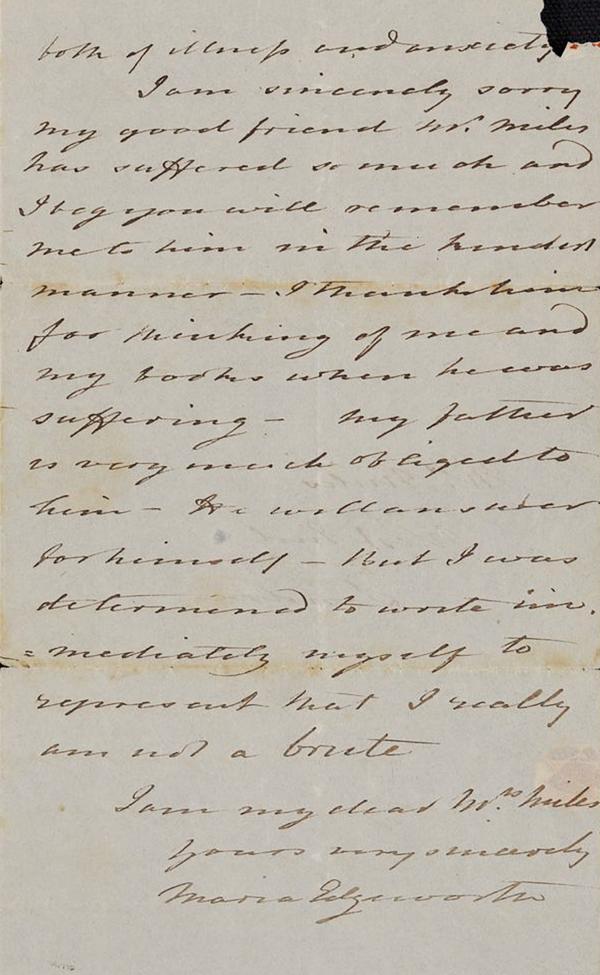 both of illness and anxiety
I am sincerely sorry
my good friend Mr. Miles
has suffered so much and
I beg you will remember
me to him in the kindest
manner – I thank him
for thinking of me and
my books when he was
suffering – My father
is very much obliged to
him – He will answer
for himself – But I was
determined to write im-
=mediately myself to
represent that I really
am not a brute
I am my dear Mrs Miles
yours very sincerely
Maria Edgeworth